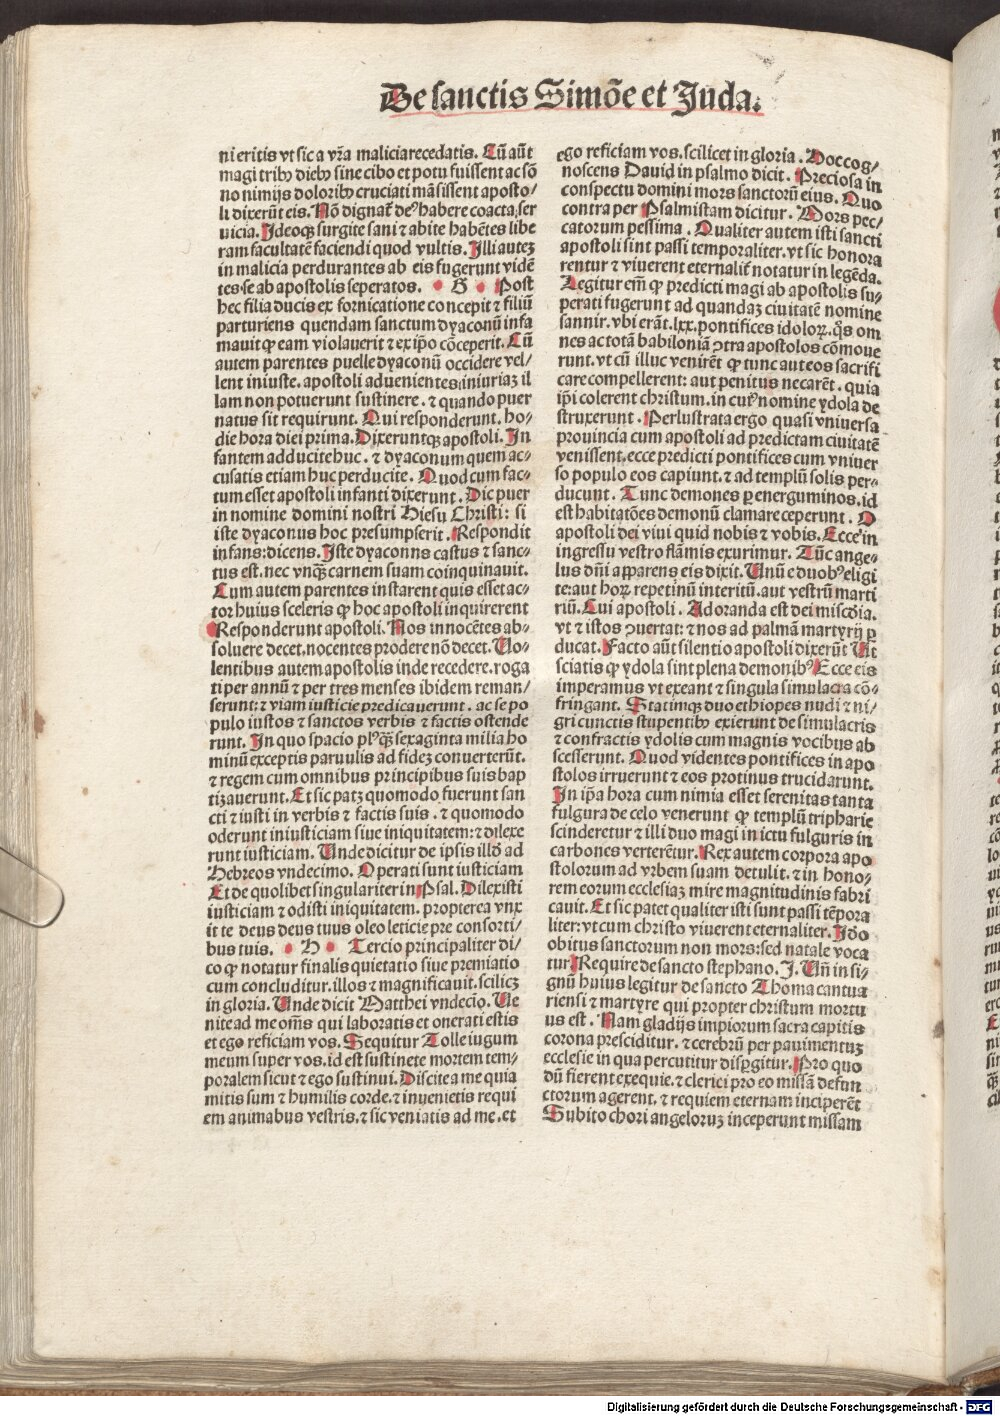 De sanctis Simōe et Juda.
ni eritis vt sic a vr̄a malicia recedatis. Cū aūt
magi tribꝰ diebꝰ sine cibo et potu fuissent ac sō
no nimijs doloribꝰ cruciati māsissent aposto/
li dixerūt eis. Nō dignat̄ deꝰ habere coacta ser
uicia. Ideoqꝫ surgite sani ⁊ abite habētes libe
ram facultatē faciendi quod vultis. Illi autez
in malicia perdurantes ab eis fugerunt vidē
tes se ab apostolis seperatos. G Post
hec filia ducis ex fornicatione concepit ⁊ filiū
parturiens quendam sanctum dyaconū infa
mauit ꝙ eam violauerit ⁊ ex ip̄o cōceperit. Cū
autem parentes puelle dyaconū occidere vel/
lent iniuste. apostoli aduenientes iniuriaz il
lam non potuerunt sustinere. ⁊ quando puer
natus sit requirunt. Qui responderunt. ho/
die hora diei prima. Dixeruntqꝫ apostoli. In
fantem adducite huc. ⁊ dyaconum quem ac/
cusatis etiam huc perducite. Quod cum fac/
tum esset apostoli infanti dixerunt. Dic puer
in nomine domini nostri Hiesu Christi: si
iste dyaconus hoc presumpserit. Respondit
infans: dicens. Iste dyaconns castus ⁊ sanc/
tus est. nec vnqꝫ carnem suam coinquinauit.
Cum autem parentes instarent quis esset ac/
tor huius sceleris ꝙ hoc apostoli inquirerent
Responderunt apostoli. Nos innocētes ab/
soluere decet. nocentes prodere nō decet. Uo/
lentibus autem apostolis inde recedere. roga
ti per annū ⁊ per tres menses ibidem reman/
serunt: ⁊ viam iusticie predicauerunt. ac se po
pulo iustos ⁊ sanctos verbis ⁊ factis ostende
runt. In quo spacio plꝰqꝫ sexaginta milia ho
minū exceptis paruulis ad fidez conuerterūt.
⁊ regem cum omnibus principibus suis bap
tizauerunt. Et sic patz quomodo fuerunt san
cti ⁊ iusti in verbis ⁊ factis suis. ⁊ quomodo
oderunt iniusticiam siue iniquitatem: ⁊ dilexe
runt iusticiam. Unde dicitur de ipsis illd̄ ad
Hebreos vndecimo. Operati sunt iusticiam
Et de quolibet singulariter in Psal. Dilexisti
iusticiam ⁊ odisti iniquitatem. propterea vnx
it te deus deus tuus oleo leticie pre consorti/
bus tuis. H Tercio principaliter di/
co ꝙ notatur finalis quietatio siue premiatio
cum concluditur. illos ⁊ magnificauit. scilicꝫ
in gloria. Unde dicit Matthei vndecīo. Ue
nite ad me om̄s qui laboratis et onerati estis
et ego reficiam vos. Sequitur Tolle iugum
meum super vos. id est sustinete mortem tem/
poralem sicut ⁊ ego sustinui. Discite a me quia
mitis sum ⁊ humilis corde. ⁊ inuenietis requi
em animabus vestris. ⁊ sic veniatis ad me. et
ego reficiam vos. scilicet in gloria. Hoc cog/
noscens Dauid in psalmo dicit. Preciosa in
conspectu domini mors sanctorū eius. Quo
contra per Psalmistam dicitur. Mors pec/
catorum pessima. Qualiter autem isti sancti
apostoli sint passi temporaliter. vt sic honora
rentur ⁊ viuerent eternalit̄ notatur in legēda.
Legitur em̄ ꝙ predicti magi ab apostolis su/
perati fugerunt ad quandaz ciuitatē nomine
sannir. vbi erāt. lxx. pontifices idoloꝝ. qͥs om
nes ac totā babiloniā ꝯtra apostolos cōmoue
runt. vt cū illuc venirēt ꝙ tunc aut eos sacrifi
care compellerent: aut penitus necarēt. quia
ip̄i colerent christum. in cuiꝰ nomine ydola de
struxerunt. Perlustrata ergo quasi vniuersa
prouincia cum apostoli ad predictam ciuitatē
venissent. ecce predicti pontifices cum vniuer
so populo eos capiunt. ⁊ ad templū solis per/
ducunt. Tunc demones ꝑ energuminos. id
est habitatōes demonū clamare ceperunt. O
apostoli dei viui quid nobis ⁊ vobis. Ecce in
ingressu vestro flāmis exurimur. Tūc ange/
lus dn̄i apparens eis dixit. Unū e duobꝰ eligi
te: aut hoꝝ repetinū interitū. aut vestrū marti
riū. Cui apostoli. Adoranda est dei miscd̄ia.
vt ⁊ istos ꝯuertat: ⁊ nos ad palmā martyrij ꝑ
ducat. Facto aūt silentio apostoli dixerūt Ut
sciatis ꝙ ydola sint plena demonibꝰ Ecce eis
imperamus vt exeant ⁊ singula simulacra cō/
fringant. Statimqꝫ duo ethiopes nudi ⁊ ni/
gri cunctis stupentibꝰ exierunt de simulacris
⁊ confractis ydolis cum magnis vocibus ab
scesserunt. Quod videntes pontifices in apo
stolos irruerunt ⁊ eos protinus trucidarunt.
In ip̄a hora cum nimia esset serenitas tanta
fulgura de celo venerunt ꝙ templū tripharie
scinderetur ⁊ illi duo magi in ictu fulguris in
carbones verterētur. Rex autem corpora apo
stolorum ad vrbem suam detulit. ⁊ in hono/
rem eorum ecclesiaz mire magnitudinis fabri
cauit. Et sic patet qualiter isti sunt passi tēpora
liter: vt cum christo viuerent eternaliter. Id̄o
obitus sanctorum non mors: sed natale voca
tur Require de sancto stephano. I. Un̄ in si/
gnū huius legitur de sancto Thoma cantua
riensi ⁊ martyre qui propter christum mortu
us est. Nam gladijs impiorum sacra capitis
corona presciditur. ⁊ cerebrū per pauimentuz
ecclesie in qua percutitur disꝑgitur. Pro quo
dū fierent exequie. ⁊ clerici pro eo missā defun
ctorum agerent. ⁊ requiem eternam inciperēt
Subito chori angeloruz inceperunt missam
Digitalisierung gefördert durch die Deutsche Forschungsgemeinschaft - DFG